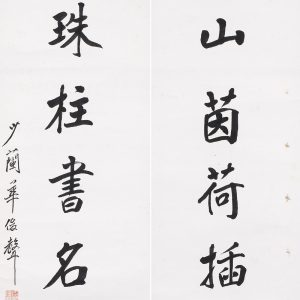 山茵荷插
珠柱書名
少蘭華俊聲